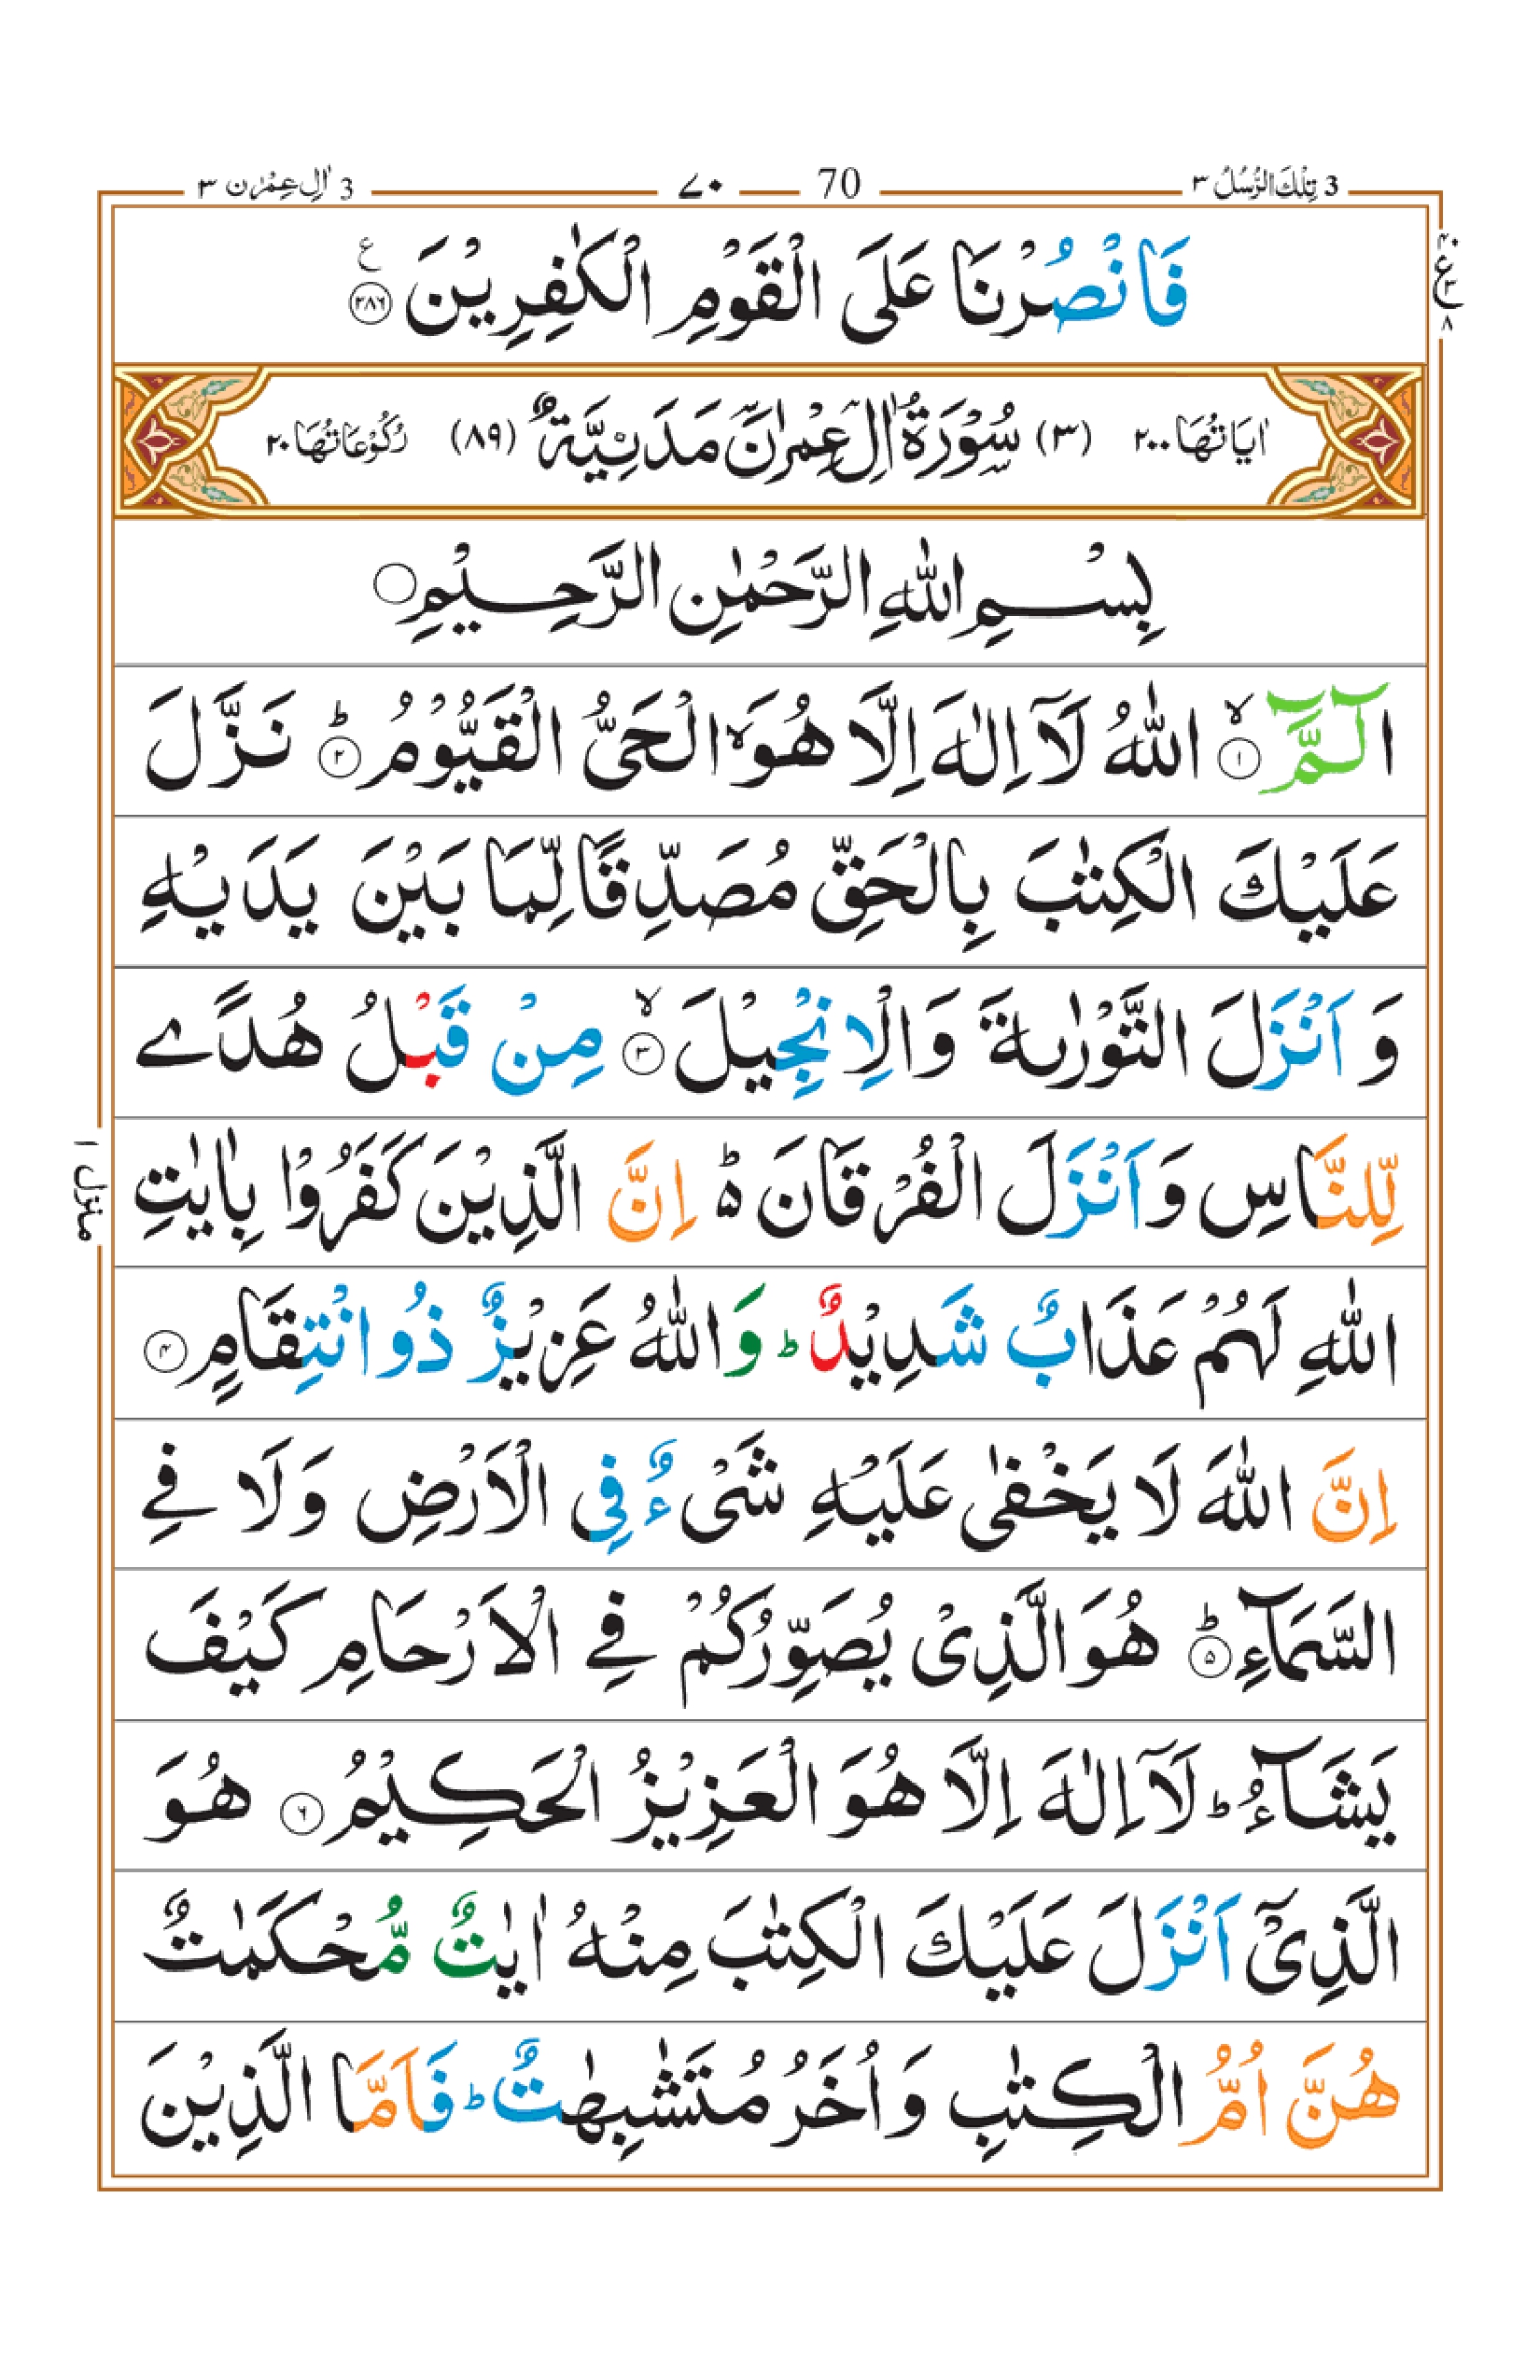 3 تِلْكَ الرُّسُلُ ٣ 70 ٧٠ 3 اٰلِ عِمْرٰن ٣
فَانْصُرْنَا عَلَى الْقَوْمِ الْكٰفِرِيْنَ ۝٢٨٦ ع
٤٠ ع ٣ ٨
اٰيَاتُهَا ٢٠٠ (٣) سُوْرَةُ اٰلِ عِمْرٰنَ مَدَنِيَّةٌ (٨٩) رُكُوْعَاتُهَا ٢٠
بِسْمِ اللّٰهِ الرَّحْمٰنِ الرَّحِيْمِ ۝
الٓمّٓ ۝١ۙ اللّٰهُ لَاۤ اِلٰهَ اِلَّا هُوَ ۙ الْحَىُّ الْقَيُّوْمُ ۝٢ؕ نَزَّلَ
عَلَيْكَ الْكِتٰبَ بِالْحَقِّ مُصَدِّقًا لِّمَا بَيْنَ يَدَيْهِ
وَ اَنْزَلَ التَّوْرٰىةَ وَالْاِنْجِيْلَ ۝٣ۙ مِنْ قَبْلُ هُدًے
لِّلنَّاسِ وَ اَنْزَلَ الْفُرْقَانَ ۥؕ اِنَّ الَّذِيْنَ كَفَرُوْا بِاٰيٰتِ
اللّٰهِ لَهُمْ عَذَابٌ شَدِيْدٌ ؕ وَاللّٰهُ عَزِيْزٌ ذُو انْتِقَامٍ ۝٤
اِنَّ اللّٰهَ لَا يَخْفٰى عَلَيْهِ شَىْءٌ فِى الْاَرْضِ وَلَا فِے
السَّمَآءِ ۝٥ؕ هُوَ الَّذِىْ يُصَوِّرُكُمْ فِے الْاَرْحَامِ كَيْفَ
يَشَآءُ ؕ لَاۤ اِلٰهَ اِلَّا هُوَ الْعَزِيْزُ الْحَكِيْمُ ۝٦ هُوَ
الَّذِىْۤ اَنْزَلَ عَلَيْكَ الْكِتٰبَ مِنْهُ اٰيٰتٌ مُّحْكَمٰتٌ
هُنَّ اُمُّ الْكِتٰبِ وَ اُخَرُ مُتَشٰبِهٰتٌ ؕ فَاَمَّا الَّذِيْنَ
منزل ١